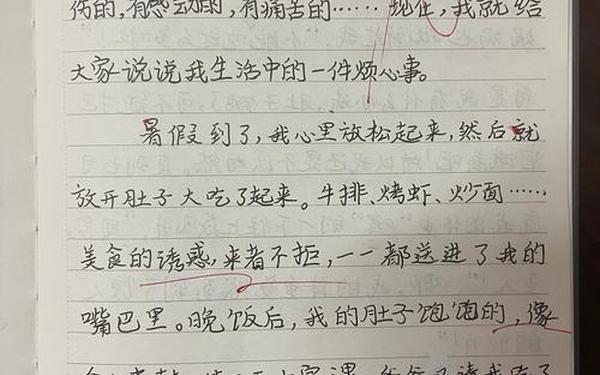 伤的,有感动的,有痛苦的……现在,我就给
大家说说我生活中的一件烦心事。
暑假到了,我心里放松起来,然后就
放开肚子大吃了起来。牛排、烤虾、炒面……
美食的诱惑,来者不拒,一一都送进了我的
嘴巴里。晚饭后,我的肚子饱饱的,像